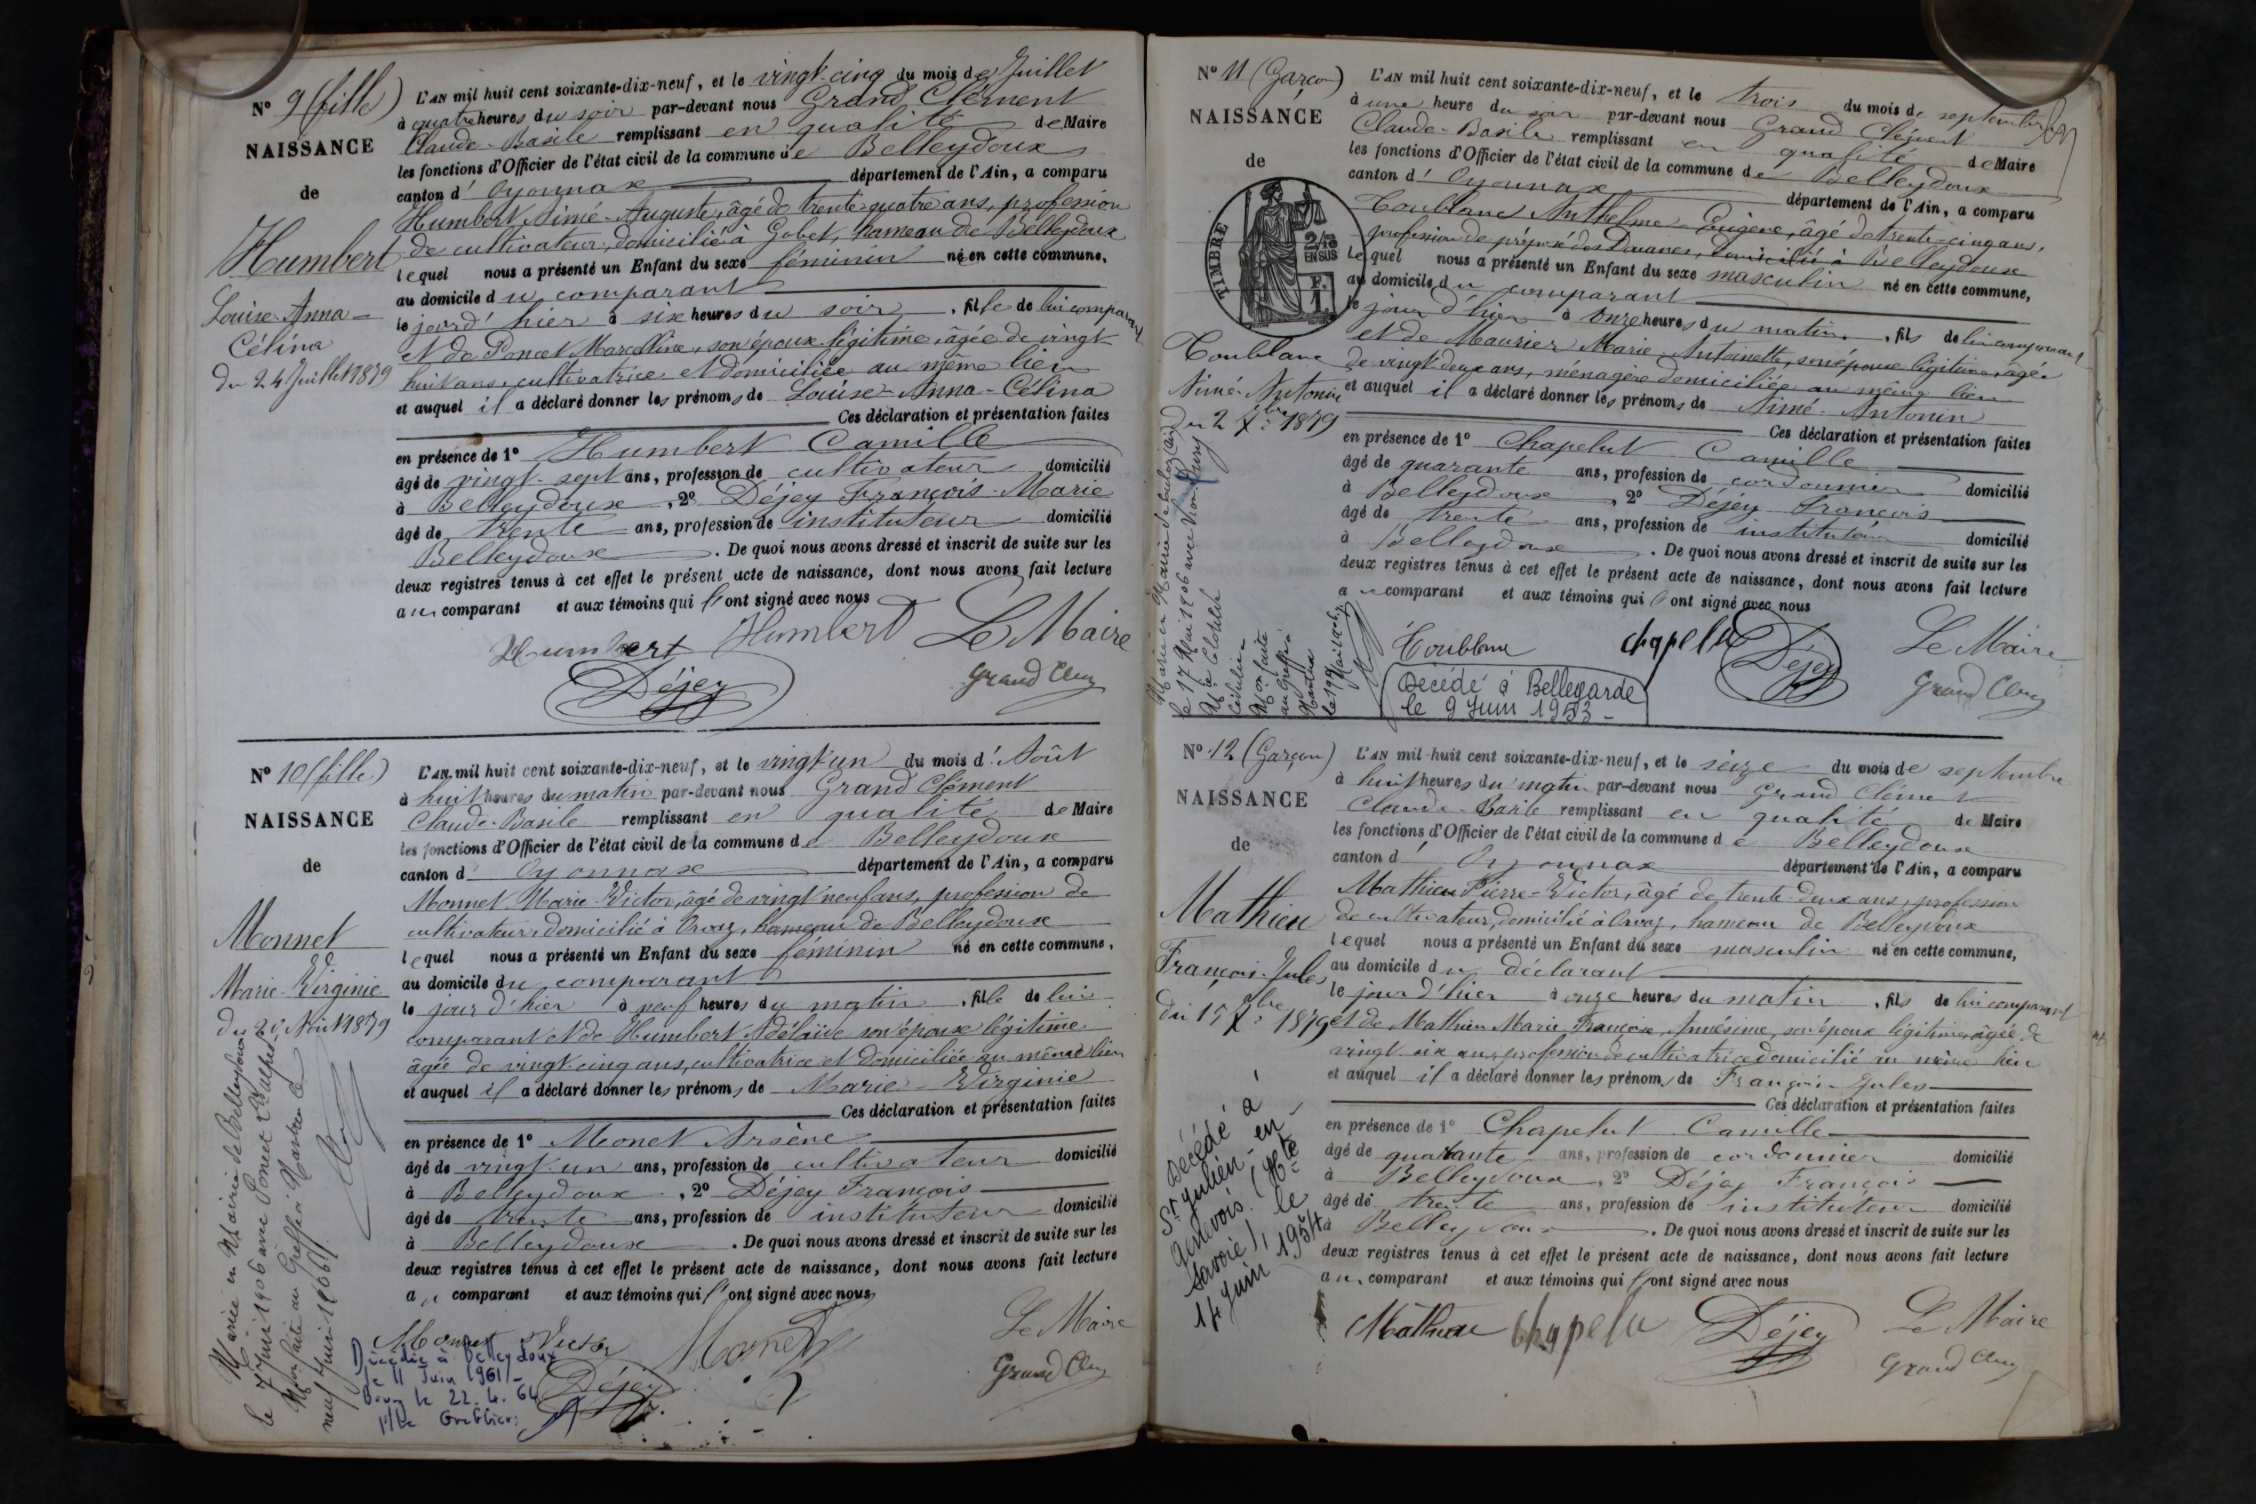 N° 9 (fille)
NAISSANCE
de
Humbert
Louise-Anna-
Célina
du 24 Juillet 1879
L'AN mil huit cent soixante-dix-neuf, et le vingt-cinq du mois de Juillet
à quatre heures du soir par-devant nous Grand Clément
Claude-Basile remplissant en qualité de Maire
les fonctions d'Officier de l'état civil de la commune de Belleydoux
canton d'Oyonnax département de l'Ain, a comparu
Humbert Aimé-Auguste, âgé de trente-quatre ans, profession
de cultivateur, domicilié à Gobet, hameau de Belleydoux
lequel nous a présenté un Enfant du sexe féminin né en cette commune,
au domicile du comparant
le jour d'hier à six heures du soir, fille de lui comparant
et de Poncet Marcelline, son épouse légitime, âgée de vingt-
huit ans, cultivatrice et domiciliée au même lieu
et auquel il a déclaré donner les prénoms de Louise-Anna-Célina
Ces déclaration et présentation faites
en présence de 1° Humbert Camille
âgé de vingt-sept ans, profession de cultivateur domicilié
à Belleydoux, 2° Déjey François-Marie
âgé de trente ans, profession de instituteur domicilié
Belleydoux. De quoi nous avons dressé et inscrit de suite sur les
deux registres tenus à cet effet le présent acte de naissance, dont nous avons fait lecture
au comparant et aux témoins qui l'ont signé avec nous
Humbert Humbert Le Maire
Déjey Grand Clem
N° 10 (fille)
NAISSANCE
de
Monnet
Marie-Virginie
du 20 Août 1879
Mariée en Mairie de Belleydoux
le 7 Juin 1906 avec Poncet
Mon faite au Greffe à Nantua le
neuf Juin 1906
L'AN mil huit cent soixante-dix-neuf, et le vingt-un du mois d'Août
à huit heures du matin par-devant nous Grand Clément
Claude-Basile remplissant en qualité de Maire
les fonctions d'Officier de l'état civil de la commune de Belleydoux
canton d'Oyonnax département de l'Ain, a comparu
Monnet Marie-Victor, âgé de vingt neuf ans, profession de
cultivateur, domicilié à Orvaz, hameau de Belleydoux
lequel nous a présenté un Enfant du sexe féminin né en cette commune,
au domicile du comparant
le jour d'hier à neuf heures du matin, fille de lui
comparant et de Humbert Adélaïde son épouse légitime
âgée de vingt-cinq ans, cultivatrice et domiciliée au même lieu
et auquel il a déclaré donner les prénoms de Marie-Virginie
Ces déclaration et présentation faites
en présence de 1° Monet Arsène
âgé de vingt-un ans, profession de cultivateur domicilié
à Belleydoux, 2° Déjey François
âgé de trente ans, profession de instituteur domicilié
à Belleydoux. De quoi nous avons dressé et inscrit de suite sur les
deux registres tenus à cet effet le présent acte de naissance, dont nous avons fait lecture
au comparant et aux témoins qui l'ont signé avec nous
Monnet Victor Monet Le Maire
Déjey Grand Clem
Décédée à Belleydoux
le 11 Juin 1961
Bourg le 22.4.64
N° 11 (Garçon)
NAISSANCE
de
TIMBRE
2/10
EN SUS
F.
1.
Coublanc
Aimé-Antonin
du 2 7bre 1879
le 17 Mai 1906 avec
Mon faite
au Greffe
Nantua
L'AN mil huit cent soixante-dix-neuf, et le trois du mois de septembre
à une heure du soir par-devant nous Grand Clément
Claude-Basile remplissant en qualité de Maire
les fonctions d'Officier de l'état civil de la commune de Belleydoux
canton d'Oyonnax département de l'Ain, a comparu
Coublanc Anthelme-Eugène, âgé de trente-cinq ans,
profession de préposé des Douanes, domicilié à Belleydoux
lequel nous a présenté un Enfant du sexe masculin né en cette commune,
au domicile du comparant
le jour d'hier à onze heures du matin, fils de lui comparant
et de Maurier Marie-Antoinette, son épouse légitime, âgée
de vingt-deux ans, ménagère domiciliée au même lieu
et auquel il a déclaré donner les prénoms de Aimé-Antonin
Ces déclaration et présentation faites
en présence de 1° Chapelut Camille
âgé de quarante ans, profession de cordonnier domicilié
à Belleydoux, 2° Déjey François
âgé de trente ans, profession de instituteur domicilié
à Belleydoux. De quoi nous avons dressé et inscrit de suite sur les
deux registres tenus à cet effet le présent acte de naissance, dont nous avons fait lecture
au comparant et aux témoins qui l'ont signé avec nous
Coublanc chapelu Déjey Le Maire
Grand Clem
Décédé à Bellegarde
le 9 Juin 1953
N° 12 (Garçon)
NAISSANCE
de
Mathieu
François-Jules
du 15 7bre 1879
Décédé à
St Julien-en-
Genevois (Hte
Savoie), le
14 Juin 1954
L'AN mil huit cent soixante-dix-neuf, et le seize du mois de septembre
à huit heures du matin par-devant nous Grand Clément
Claude-Basile remplissant en qualité de Maire
les fonctions d'Officier de l'état civil de la commune de Belleydoux
canton d'Oyonnax département de l'Ain, a comparu
Mathieu Pierre-Victor, âgé de trente-deux ans, profession
de cultivateur, domicilié à Orvaz, hameau de Belleydoux
lequel nous a présenté un Enfant du sexe masculin né en cette commune,
au domicile du déclarant
le jour d'hier à onze heures du matin, fils de lui comparant
et de Mathieu Marie Françoise Annésime, son épouse légitime, âgée de
vingt-six ans, profession de cultivatrice domicilié au même lieu
et auquel il a déclaré donner les prénoms de François-Jules
Ces déclaration et présentation faites
en présence de 1° Chapelut Camille
âgé de quarante ans, profession de cordonnier domicilié
à Belleydoux, 2° Déjey François
âgé de trente ans, profession de instituteur domicilié
à Belleydoux. De quoi nous avons dressé et inscrit de suite sur les
deux registres tenus à cet effet le présent acte de naissance, dont nous avons fait lecture
au comparant et aux témoins qui l'ont signé avec nous
Mathieu chapelu Déjey Le Maire
Grand Clem